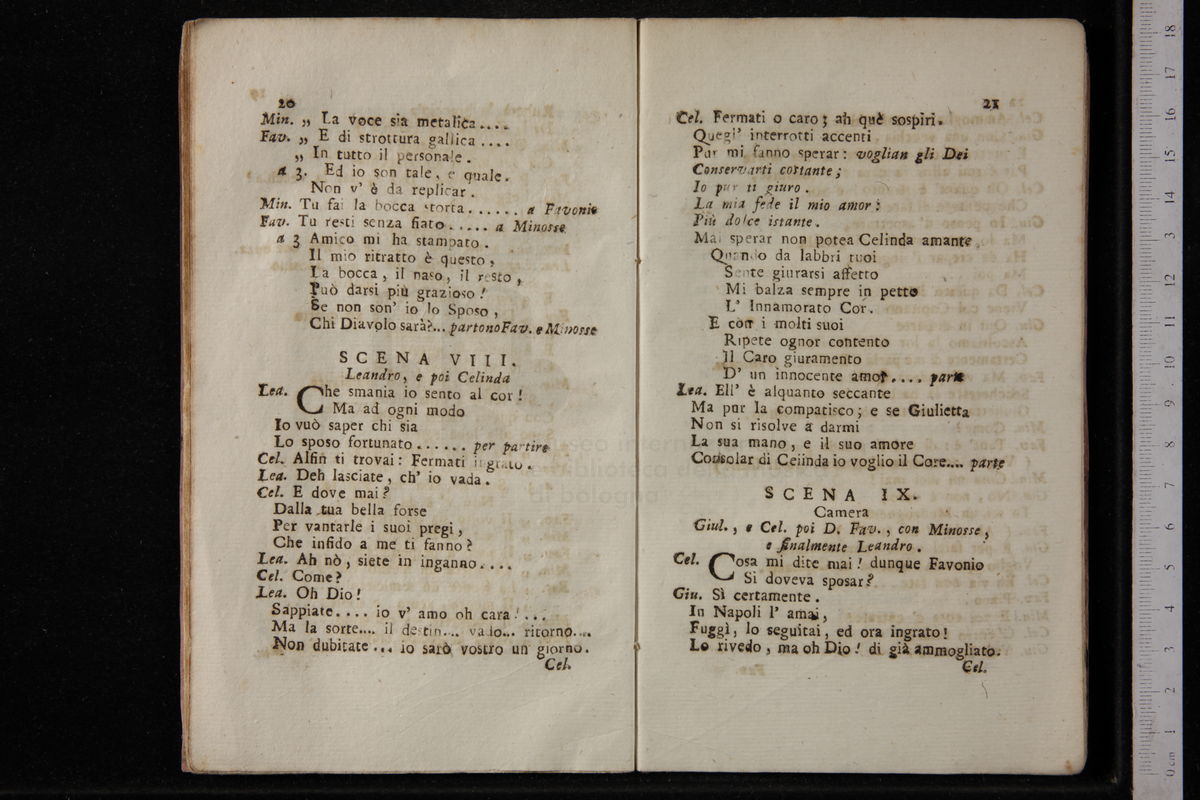 20
Min. „ La voce sia metalica....
Fav. „ E di strottura gallica ....
„ In tutto il personale.
a 3. Ed io son tale, e quale.
Non v' è da replicar.
Min. Tu fai la bocca storta...... a Favonio
Fav. Tu resti senza fiato..... a Minosse
a 3 Amico mi ha stampato.
Il mio ritratto è questo,
La bocca, il naso, il resto,
Può darsi più grazioso!
Se non son' io lo Sposo,
Chi Diavolo sarà?... partono Fav. e Minosse
SCENA VIII.
Leandro, e poi Celinda
Lea. Che smania io sento al cor!
Ma ad ogni modo
Io vuò saper chi sia
Lo sposo fortunato ...... per partire
Cel. Alfin ti trovai: Fermati ingrato.
Lea. Deh lasciate, ch' io vada.
Cel. E dove mai?
Dalla tua bella forse
Per vantarle i suoi pregi,
Che infido a me ti fanno?
Lea. Ah nò, siete in inganno....
Cel. Come?
Lea. Oh Dio!
Sappiate.... io v' amo oh cara! ...
Ma la sorte.... il destin... vado... ritorno....
Non dubitate... io sarò vostro un giorno.
Cel.
21
Cel. Fermati o caro; ah què sospiri.
Quegl' interrotti accenti
Pur mi fanno sperar: voglian gli Dei
Conservarti costante;
Io pur ti giuro.
La mia fede il mio amor:
Più dolce istante.
Mai sperar non potea Celinda amante.
Quando da labbri tuoi
Sente giurarsi affetto
Mi balza sempre in petto
L' Innamorato Cor.
E con i molti suoi
Ripete ognor contento
Il Caro giuramento
D' un innocente amor.... parte
Lea. Ell' è alquanto seccante
Ma pur la compatisco; e se Giulietta
Non si risolve a darmi
La sua mano, e il suo amore
Consolar di Celinda io voglio il Core.... parte
SCENA IX.
Camera
Giul., e Cel. poi D. Fav., con Minosse,
e finalmente Leandro.
Cel. Cosa mi dite mai! dunque Favonio
Si doveva sposar?
Giu. Sì certamente.
In Napoli l' amai,
Fuggì, lo seguitai, ed ora ingrato!
Lo rivedo, ma oh Dio! di già ammogliato.
Cel.